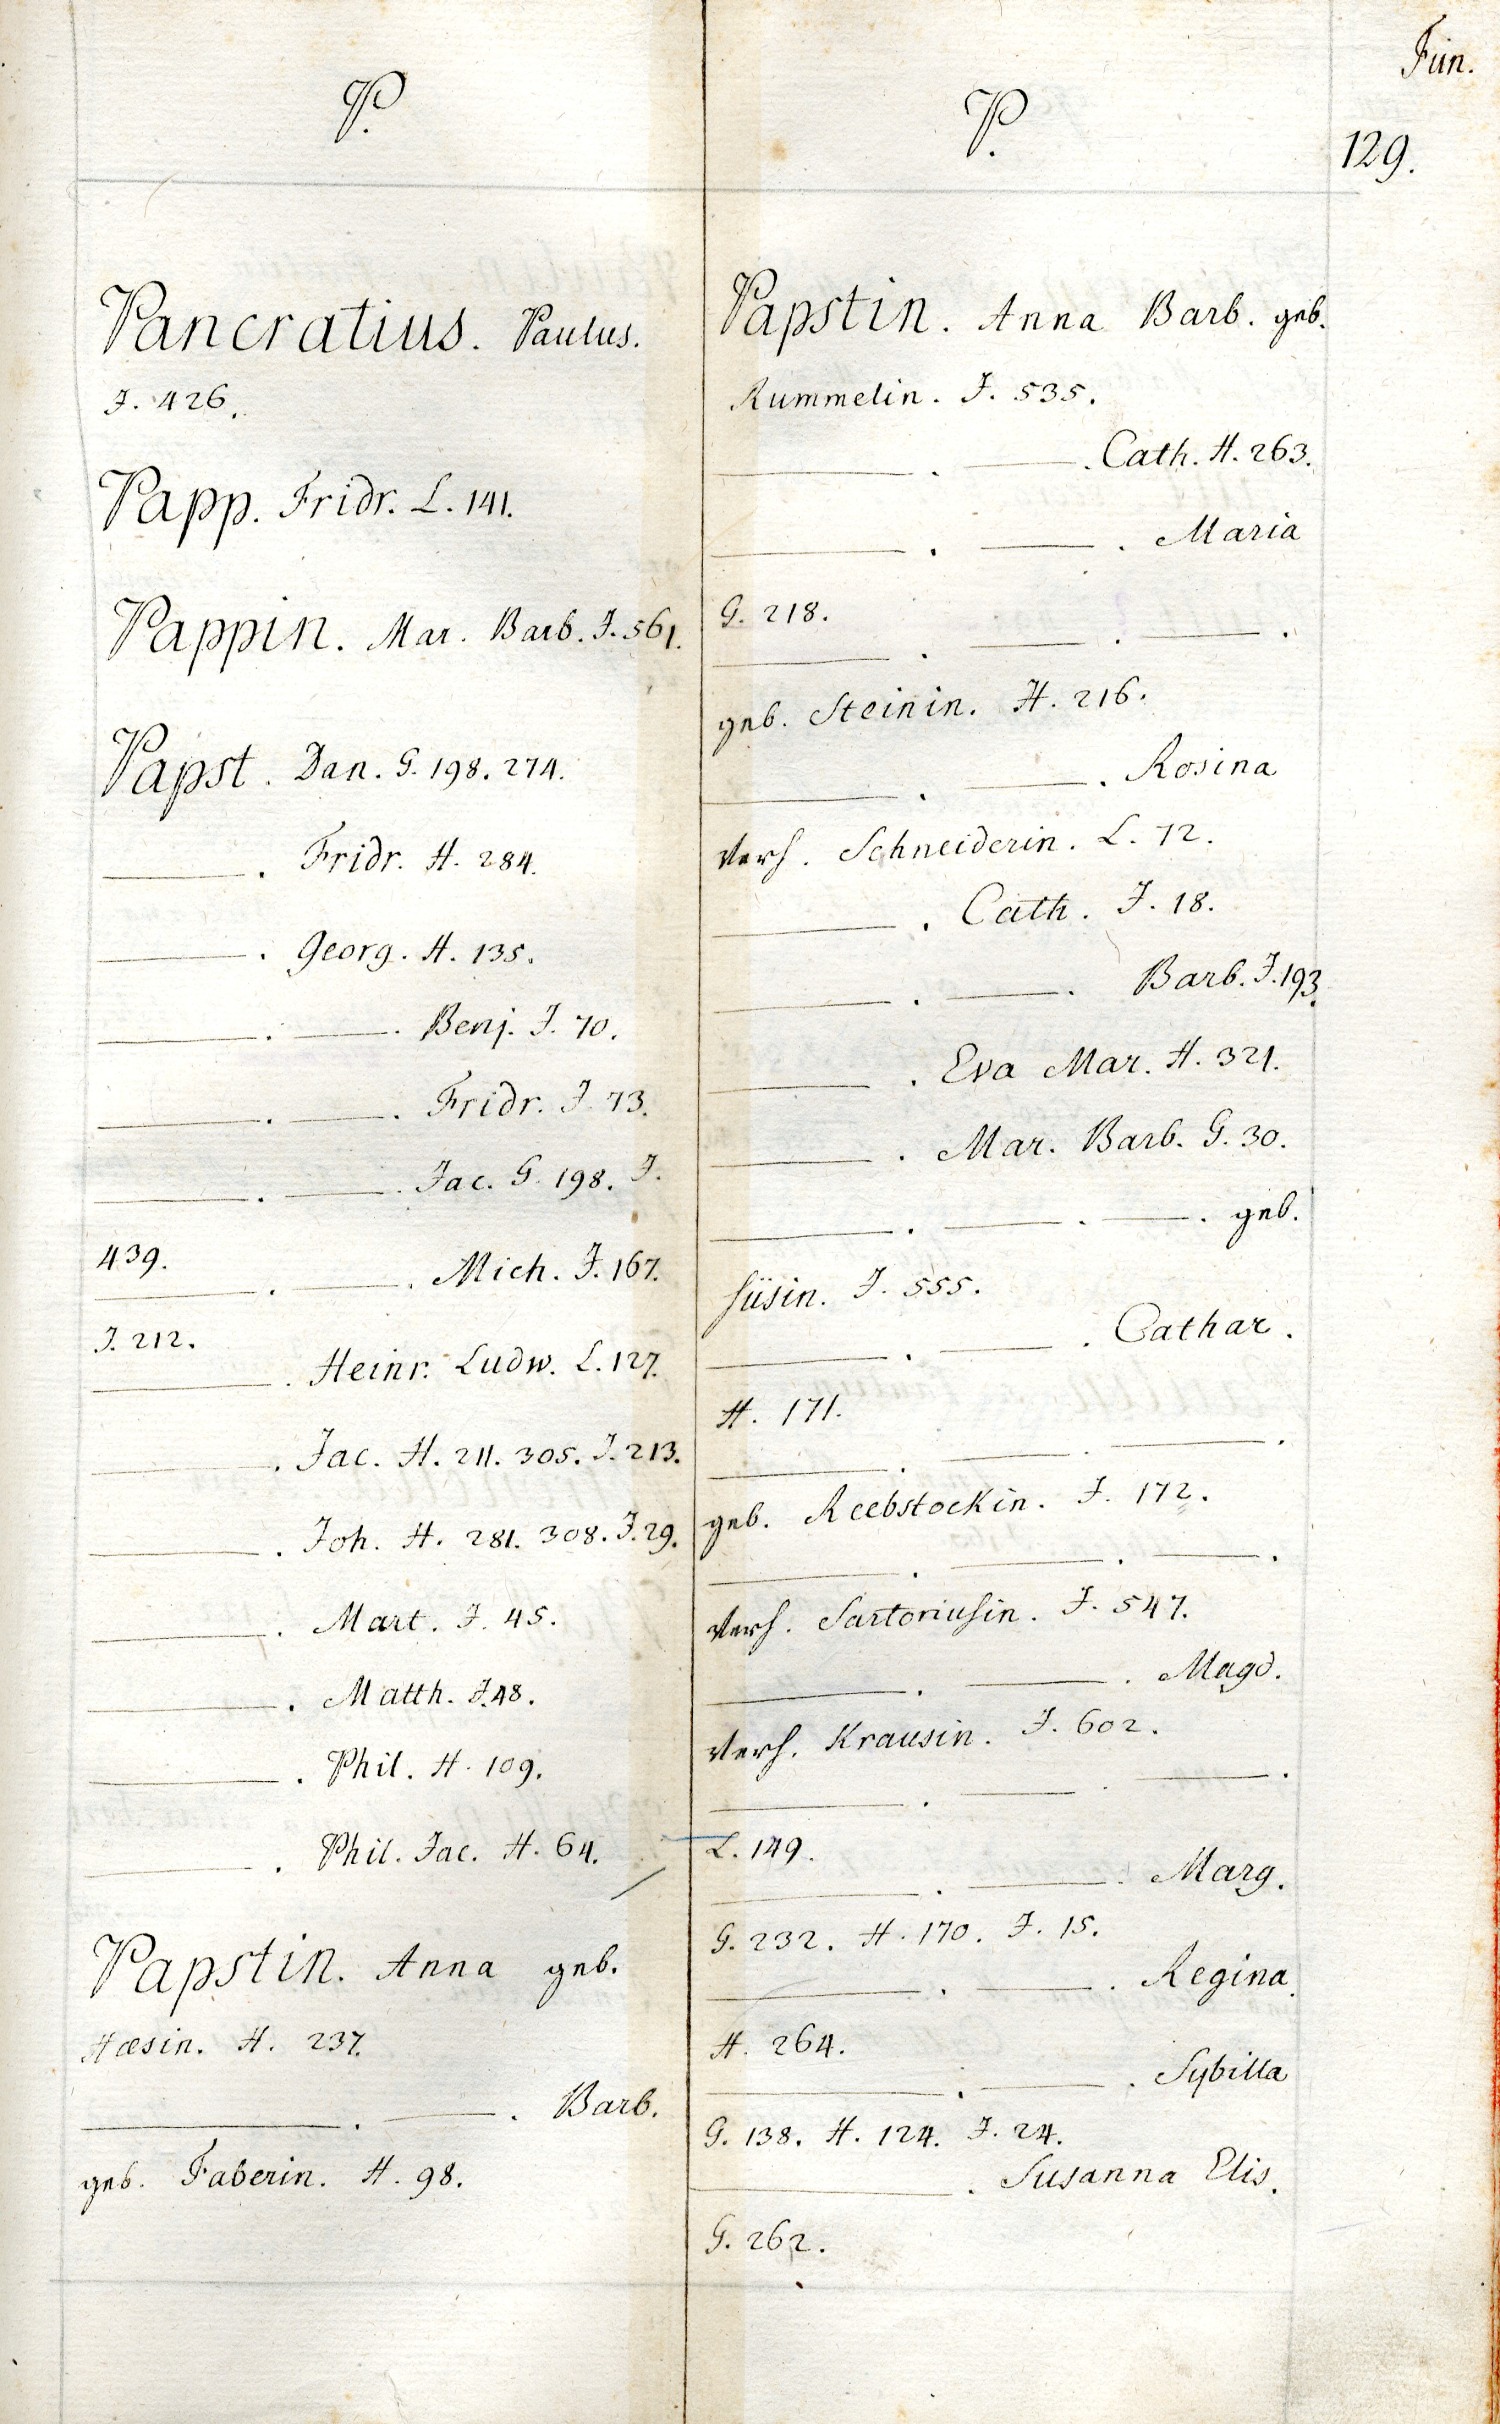 Fün.
129.
P.
Pancratius. Paulus.
J. 426.
Papp. Fridr. L. 141.
Pappin. Mar. Barb. J. 561.
Papst. Dan. G. 198. 274.
———. Fridr. H. 284.
———. Georg. H. 135.
———. ———. Benj. J. 70.
———. ———. Fridr. J. 73.
———. ———. Jac. G. 198. J.
439.
———. ———. Mich. J. 167.
J. 212.
———. Heinr. Ludw. L. 127.
———. Jac. H. 211. 305. J. 213.
———. Joh. H. 281. 308. J. 29.
———. Mart. J. 45.
———. Matth. J. 48.
———. Phil. H. 109.
———. Phil. Jac. H. 64.
Papstin. Anna geb.
Hæsin. H. 237.
———. ———. Barb.
geb. Faberin. H. 98.
P.
Papstin. Anna Barb. geb.
Rummelin. J. 535.
———. ———. Cath. H. 263.
———. ———. Maria
G. 218.
———. ———. ———.
geb. Steinin. H. 216.
———. ———. Rosina
verh. Schneiderin. L. 72.
———. Cath. J. 18.
———. ———. Barb. J. 193.
———. Eva Mar. H. 321.
———. Mar. Barb. G. 30.
———. ———. ———. geb.
Süsin. J. 555.
———. ———. Cathar.
H. 171.
———. ———. ———.
geb. Reebstockin. J. 172.
———. ———. ———.
verh. Sartoriusin. J. 547.
———. ———. Magd.
verh. Krausin. J. 602.
———. ———. ———.
L. 149.
———. ———. Marg.
G. 232. H. 170. J. 15.
———. ———. Regina.
H. 264.
———. ———. Sybilla
G. 138. H. 124. J. 24.
———. Susanna Elis.
G. 262.